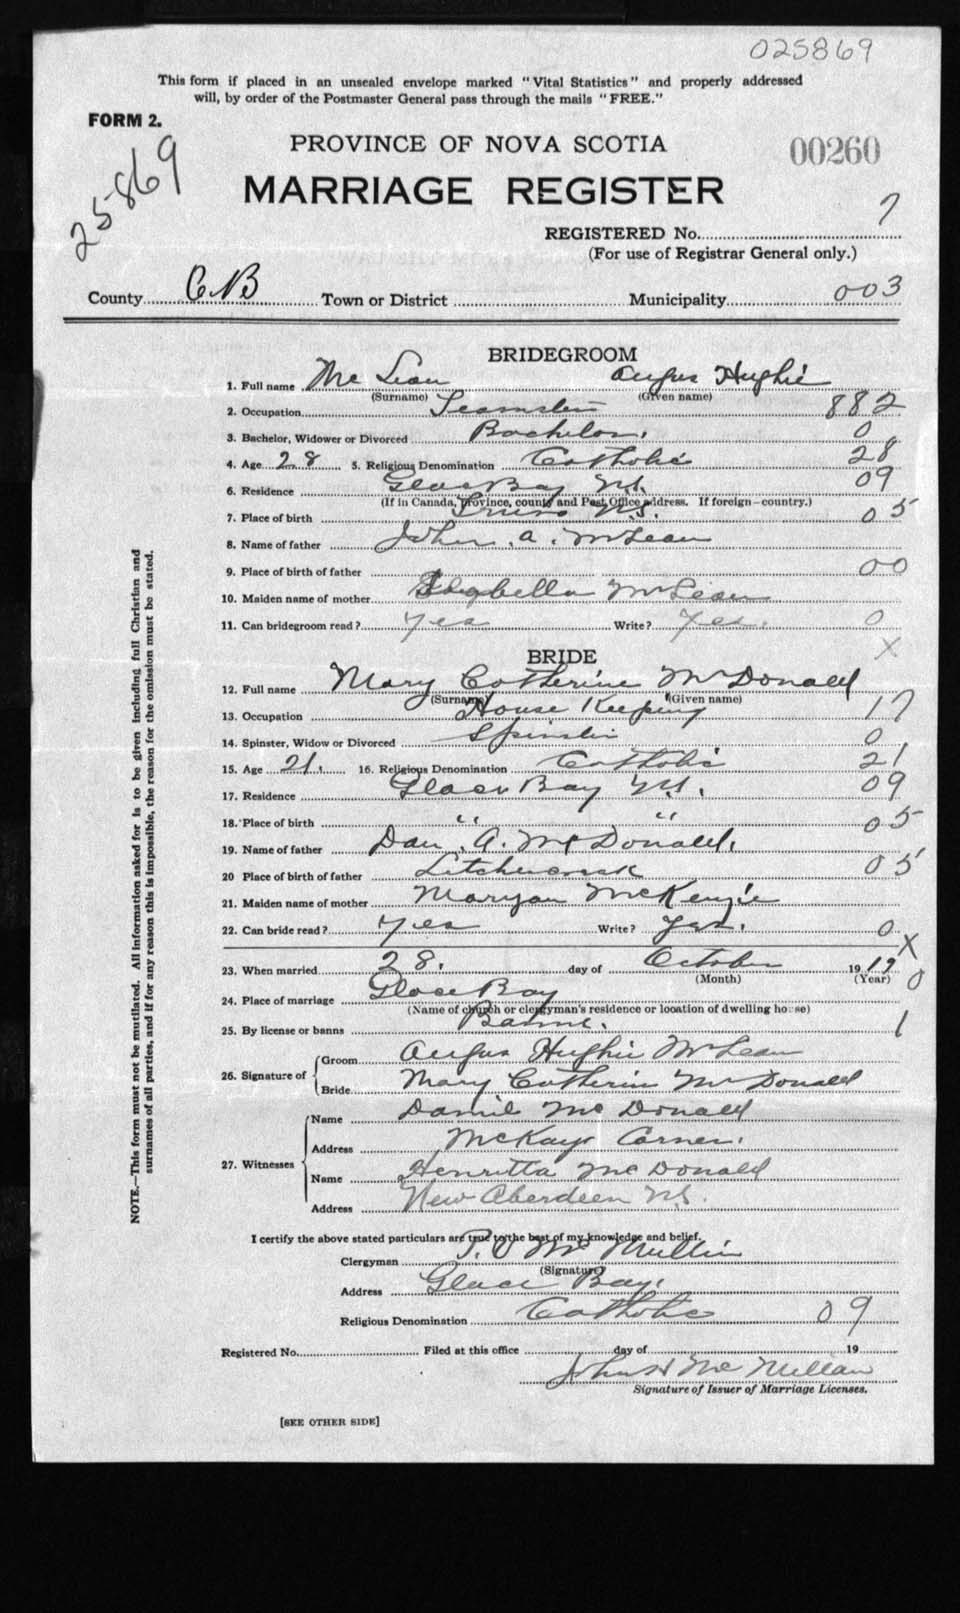 025869
This form if placed in an unsealed envelope marked "Vital Statistics" and properly addressed
will, by order of the Postmaster General pass through the mails "FREE."
FORM 2.
25869
PROVINCE OF NOVA SCOTIA
00260
MARRIAGE REGISTER
REGISTERED No. 7
(For use of Registrar General only.)
County C.B Town or District Municipality 003
BRIDEGROOM
1. Full name Mc Lean Angus Hughie
(Surname) (Given name)
2. Occupation Teamster 882
3. Bachelor, Widower or Divorced Bachelor. 0
4. Age 28 5. Religious Denomination Catholic 28
6. Residence Glace Bay N.S. 09
(If in Canada, province, county and Post Office address. If foreign—country.)
7. Place of birth Truro N.S. 05
8. Name of father John. A. McLean
9. Place of birth of father 00
10. Maiden name of mother McLean
11. Can bridegroom read? Yes Write? Yes. 0
X
BRIDE
12. Full name Mary Catherine McDonald
(Surname) (Given name)
13. Occupation House Keeping 17
14. Spinster, Widow or Divorced Spinster 0
15. Age 21. 16. Religious Denomination Catholic 21
17. Residence Glace Bay N.S. 09
18. Place of birth " " 05
19. Name of father Dan. A. McDonald.
20 Place of birth of father 05
21. Maiden name of mother Maryan McKenzie
22. Can bride read? Yes Write? Yes. 0
X
23. When married 28. day of October 1919
(Month) (Year) 0
24. Place of marriage Glace Bay
(Name of church or clergyman's residence or location of dwelling house)
25. By license or banns Banns. 1
26. Signature of Groom Angus Hughie McLean
Bride Mary Catherin McDonald
27. Witnesses Name Daniel McDonald
Address McKays Corner.
Name Henretta McDonald
Address New Aberdeen N.S.
I certify the above stated particulars are true to the best of my knowledge and belief.
Clergyman McMullin
(Signature)
Address Glace Bay.
Religious Denomination Catholic 09
Registered No. Filed at this office day of 19
John H McMillan
Signature of Issuer of Marriage Licenses.
[SEE OTHER SIDE]
NOTE.—This form must not be mutilated. All information asked for is to be given including full Christian and
surnames of all parties, and if for any reason this is impossible, the reason for the omission must be stated.